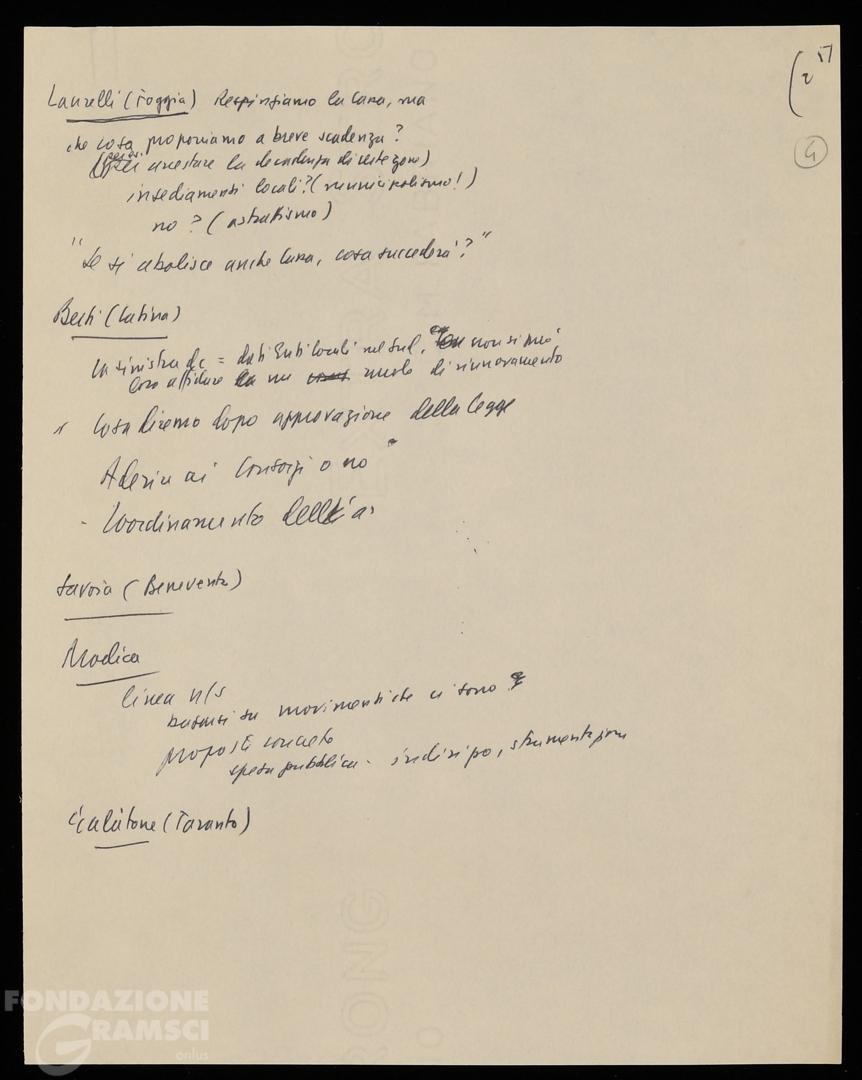 (2 51
4
Lauzelli (Foggia) Respingiamo la Casa, ma
che cosa proponiamo a breve scadenza?
arrestare la decadenza di certe zone)
insediamenti locali? (municipalismo!)
no? (astrattismo)
"Se si abolisce anche Casa, cosa succederà?"
Berti (Latina)
La sinistra dc = dati Enti locali nel Sud, non si può
loro affidare un ruolo di rinnovamento
Cosa diremo dopo approvazione della legge
Aderire ai Consorzi o no
- Coordinamento
Savoia (Benevento)
Modica
linea n/s
basarsi su movimenti che ci sono
proposte concrete
spesa pubblica - indirizzo, strumentazione
Calatone (Taranto)
FONDAZIONE
GRAMSCI
onlus